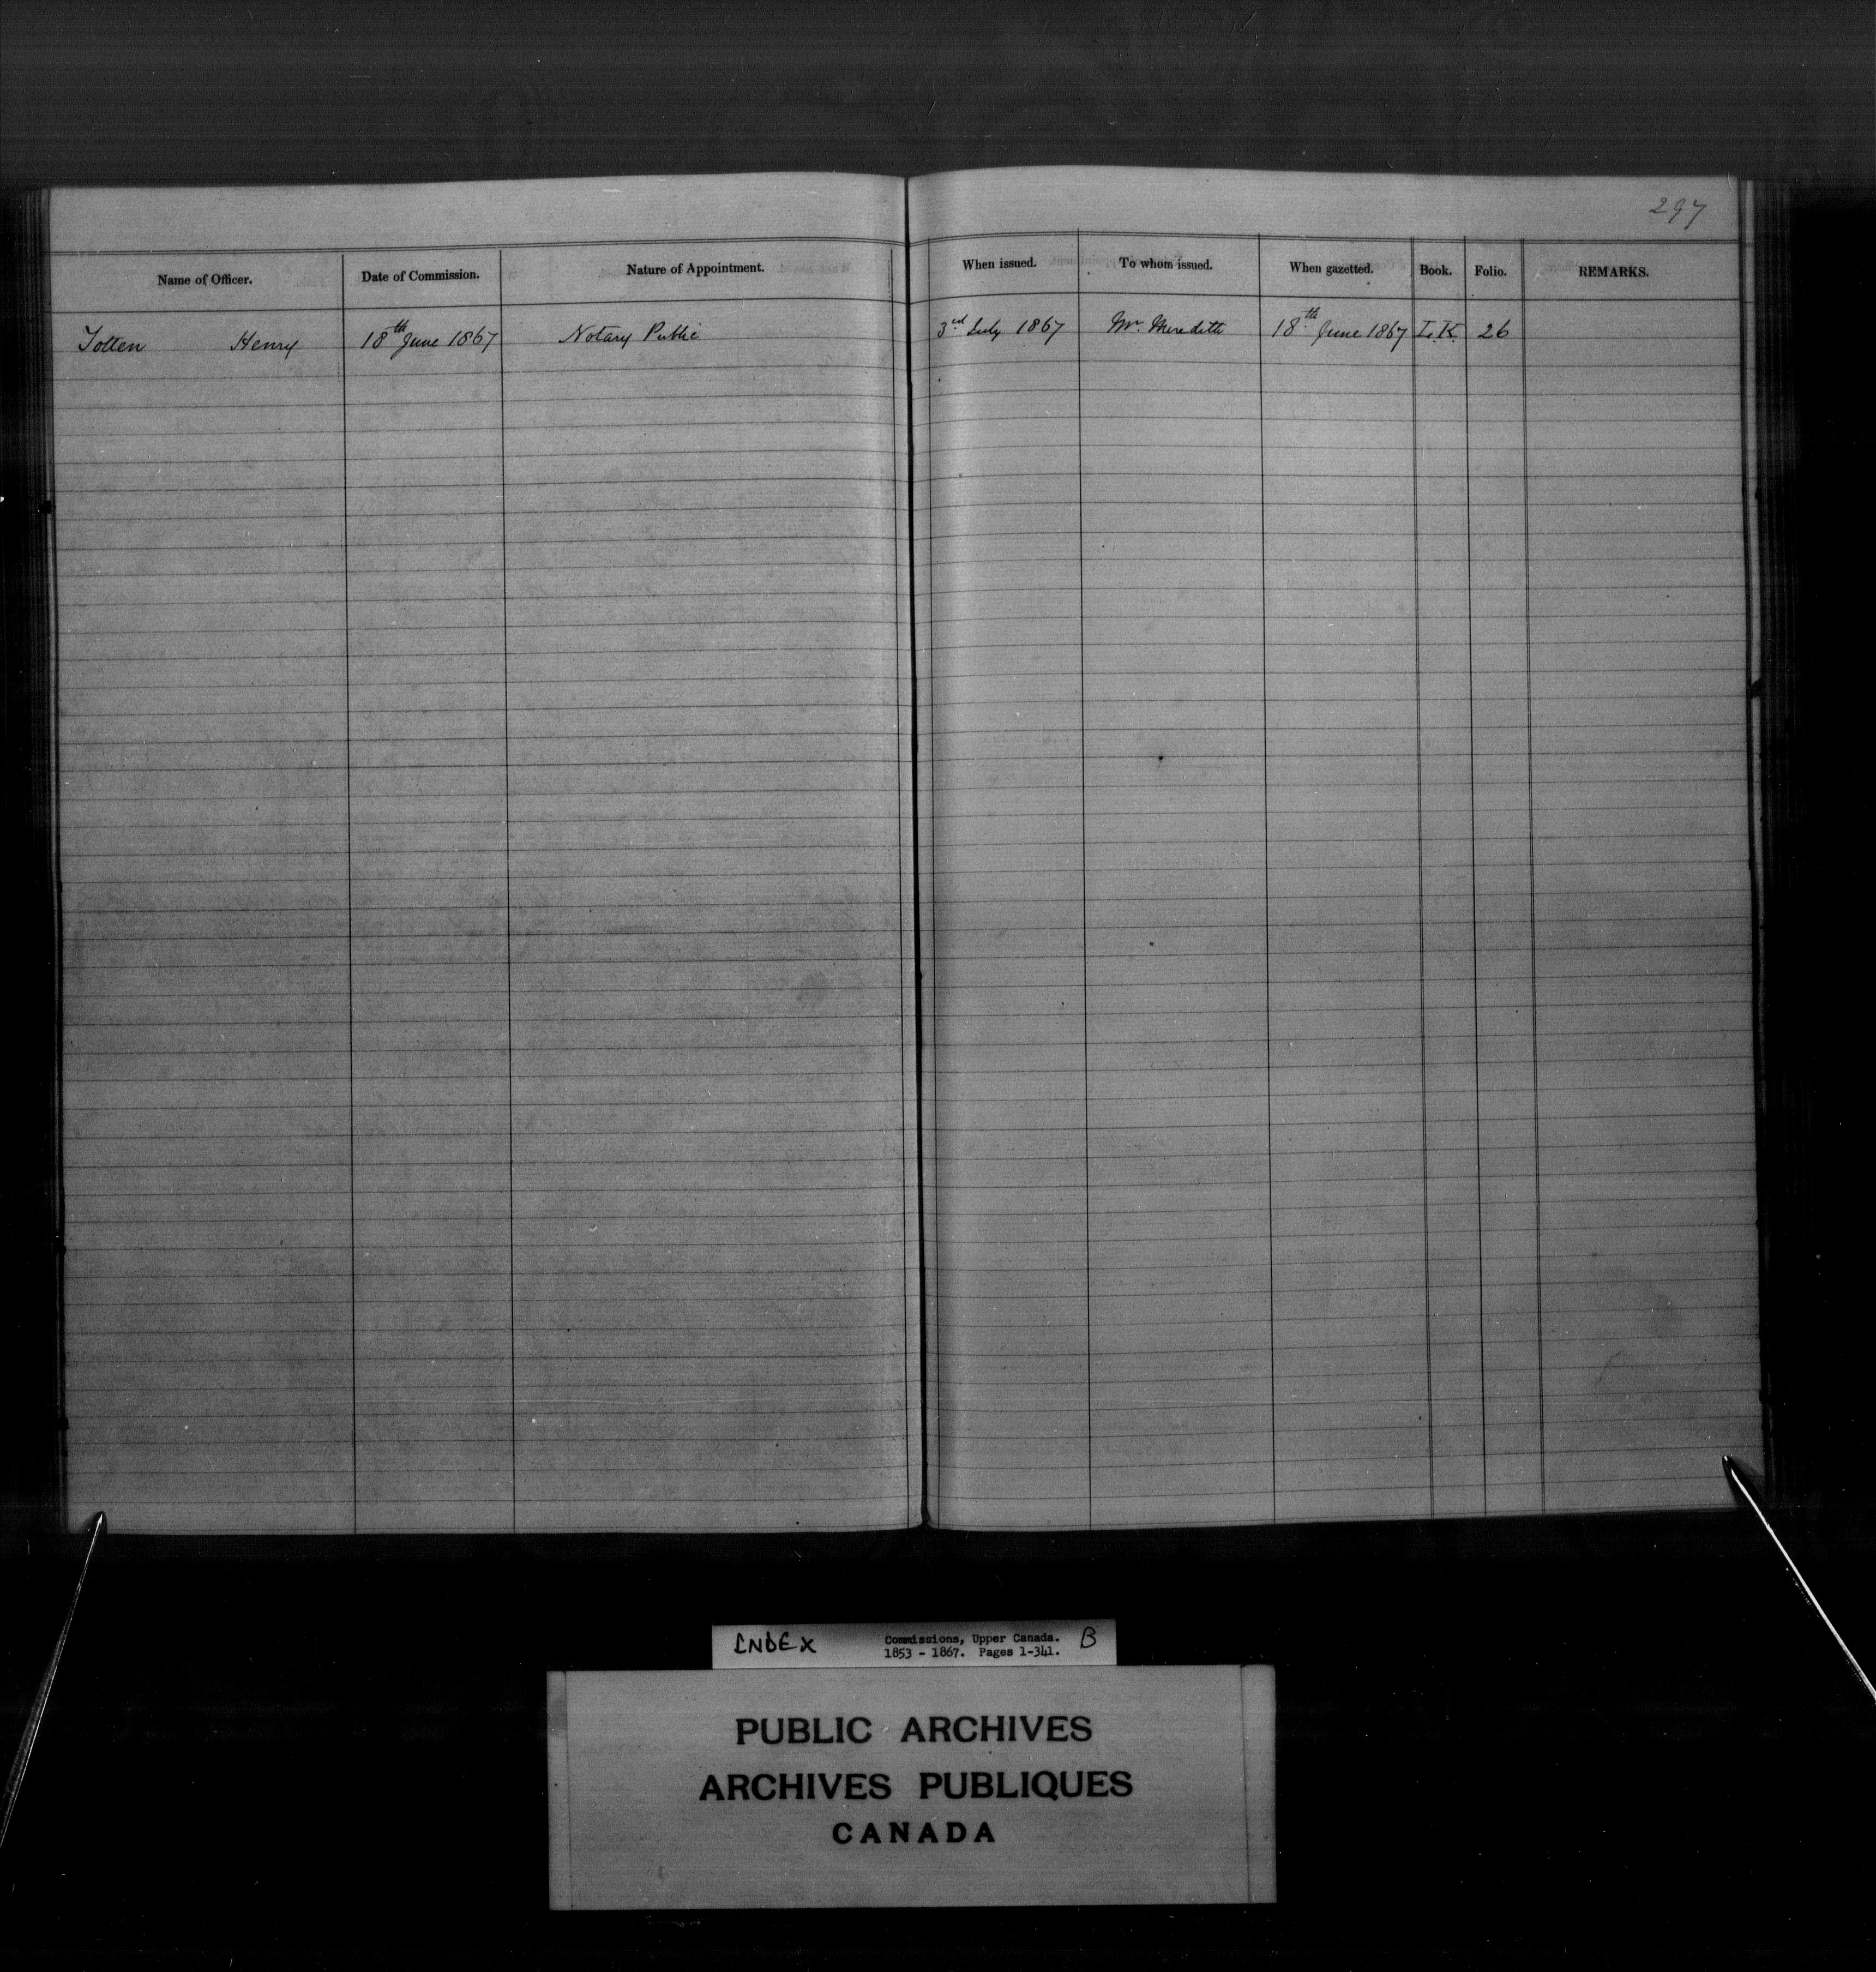 297
Name of Officer. Date of Commission. Nature of Appointment. When issued. To whom issued. When gazetted. Book. Folio. REMARKS.
Totten Henry 18th June 1867 Notary Public 3rd July 1867 Mr. Meredith 18th June 1867 L.K. 26
INDEX Commissions, Upper Canada. B
1853 - 1867. Pages 1-341.
PUBLIC ARCHIVES
ARCHIVES PUBLIQUES
CANADA